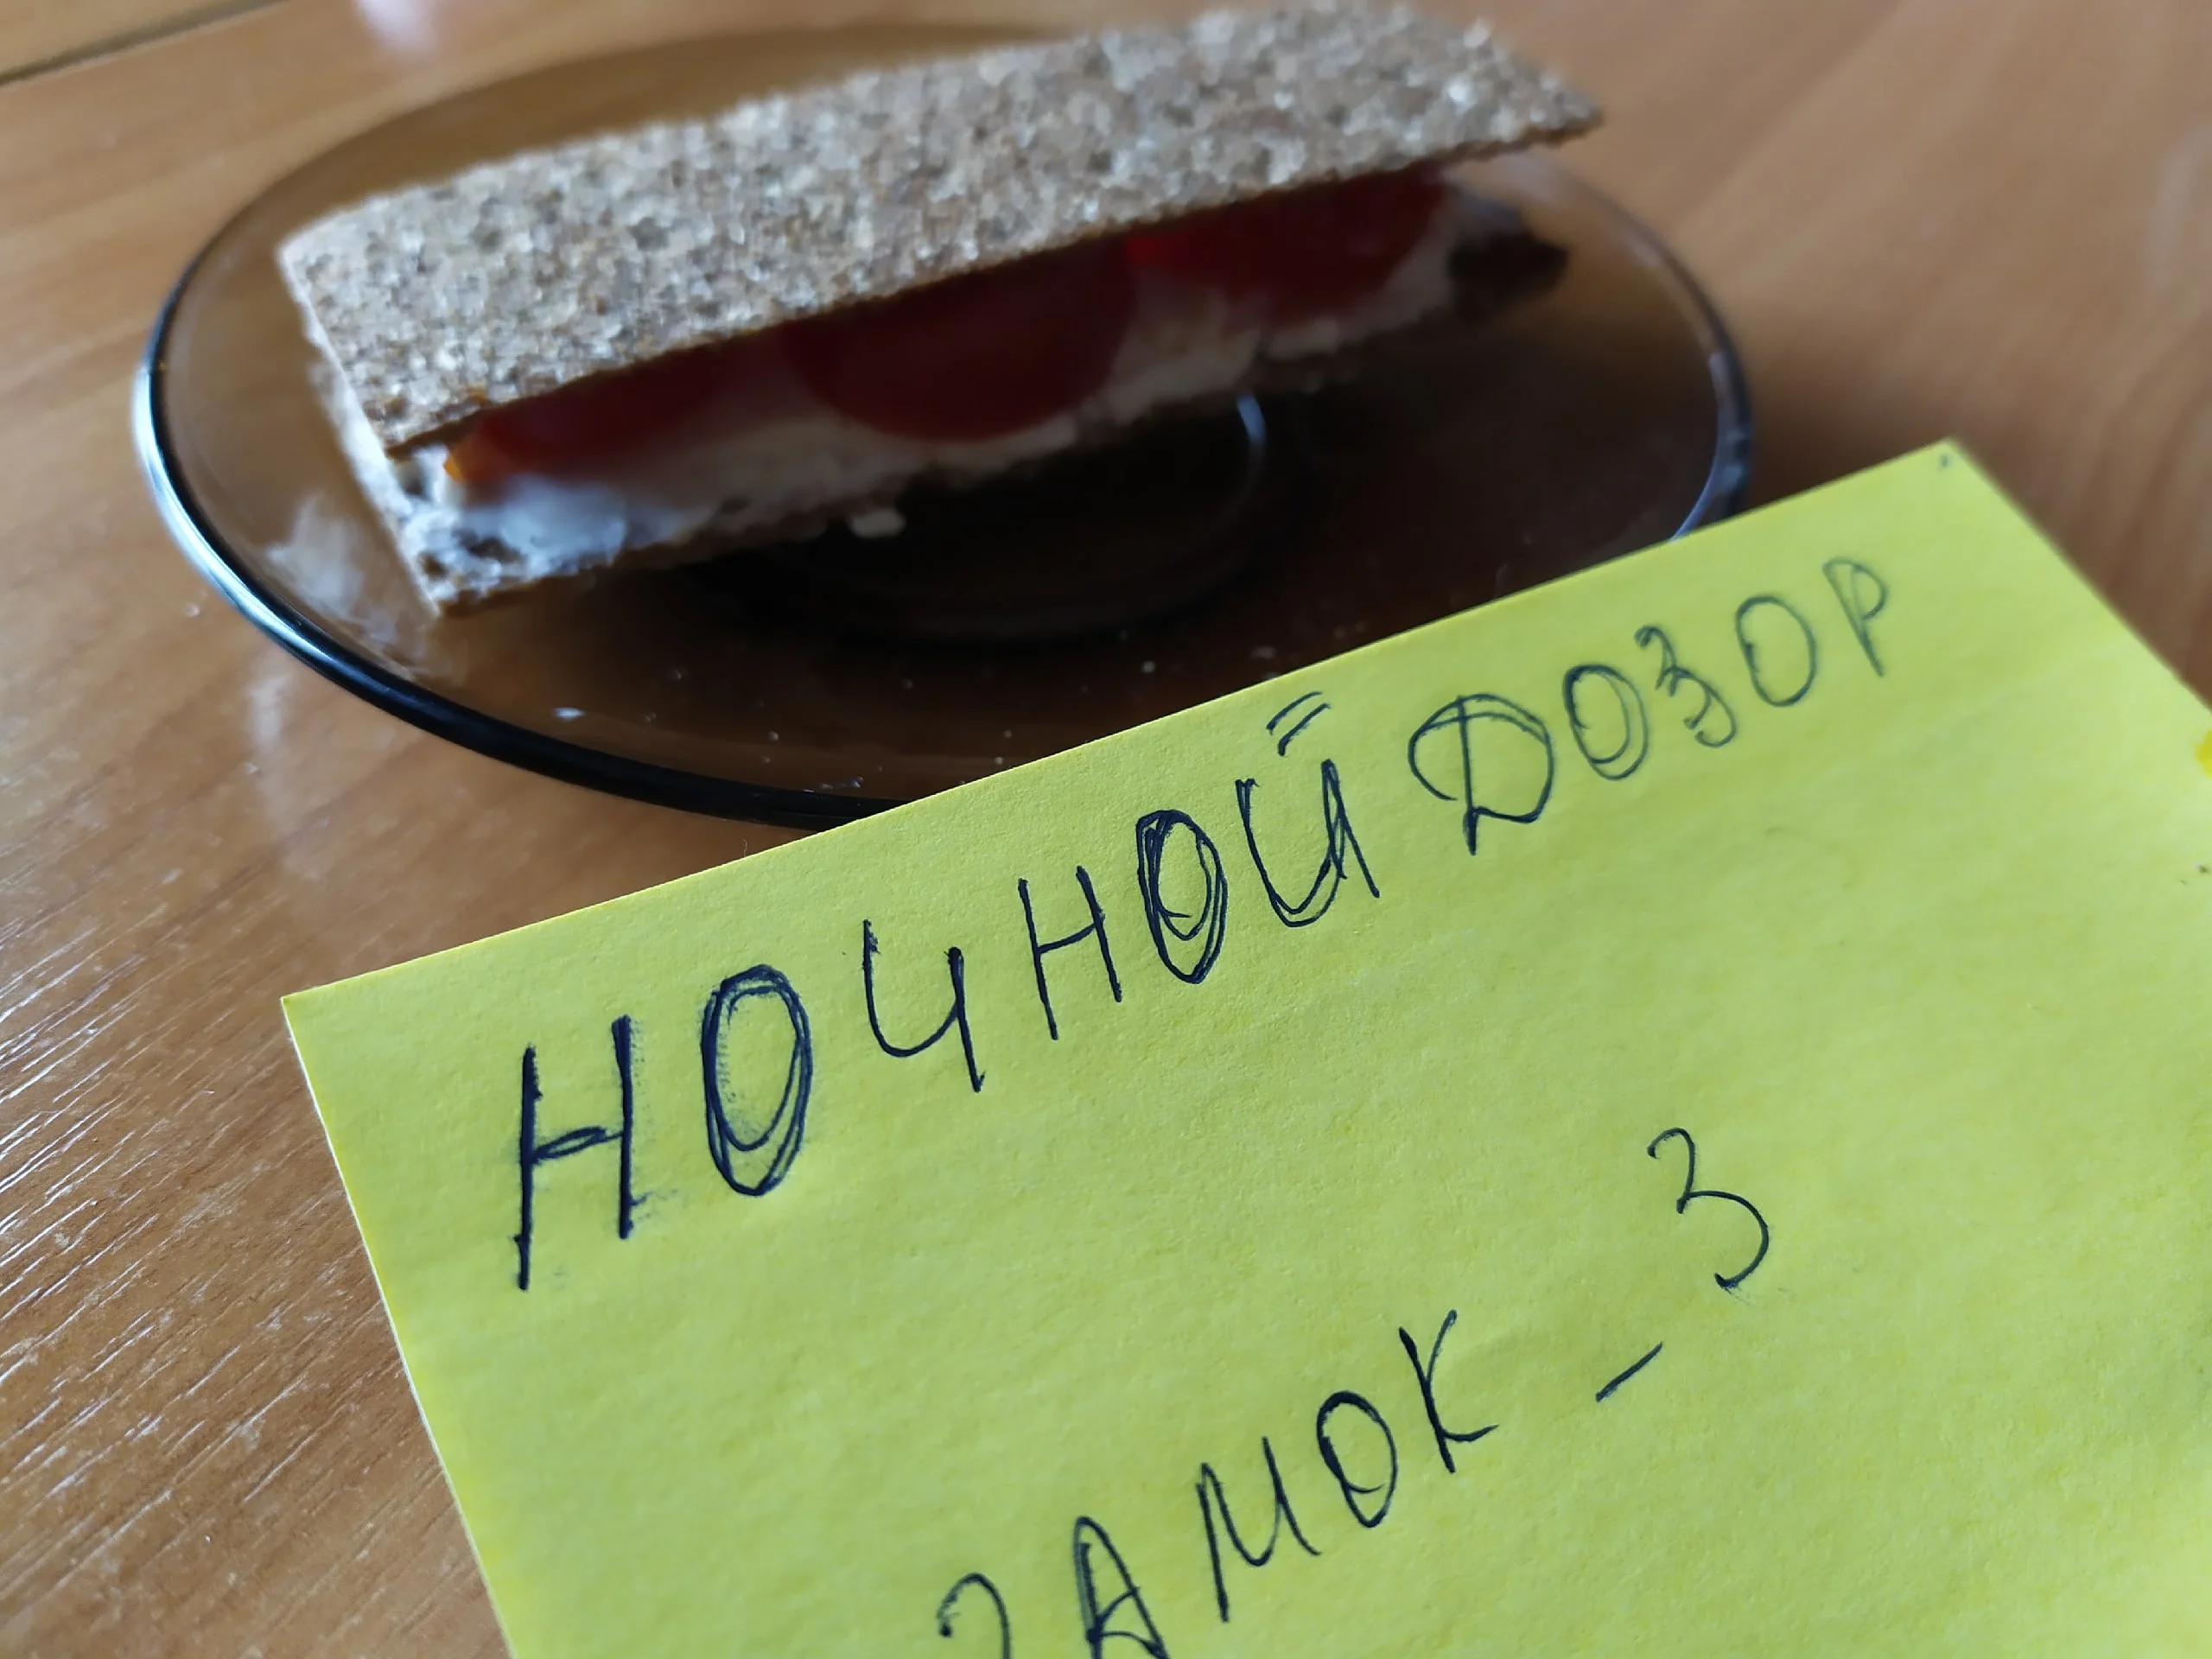 НОЧНОЙ ДОЗОР
ЗАМОК - 3